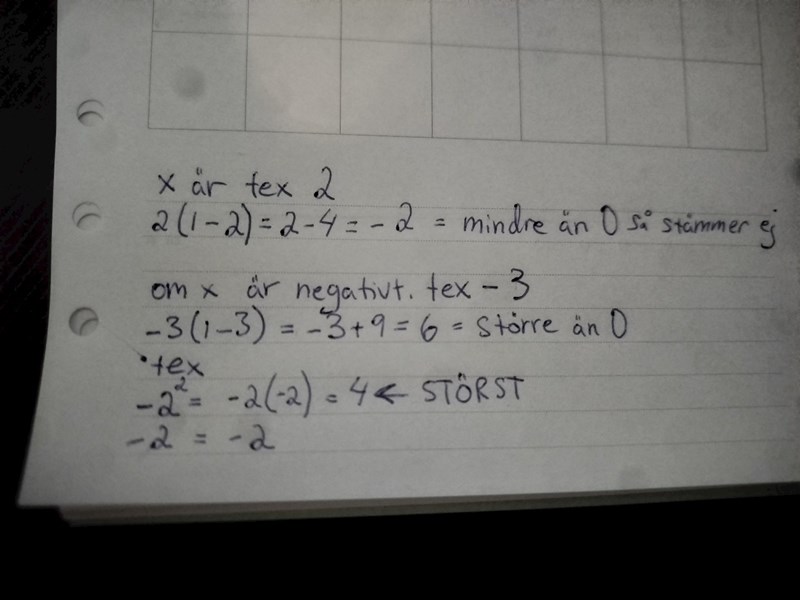 x är tex 2
2(1-2) = 2-4 = -2 = mindre än 0 så stämmer ej
om x är negativt. tex -3
-3(1-3) = -3+9 = 6 = större än 0
• tex
-2² = -2(-2) = 4 ← STÖRST
-2 = -2